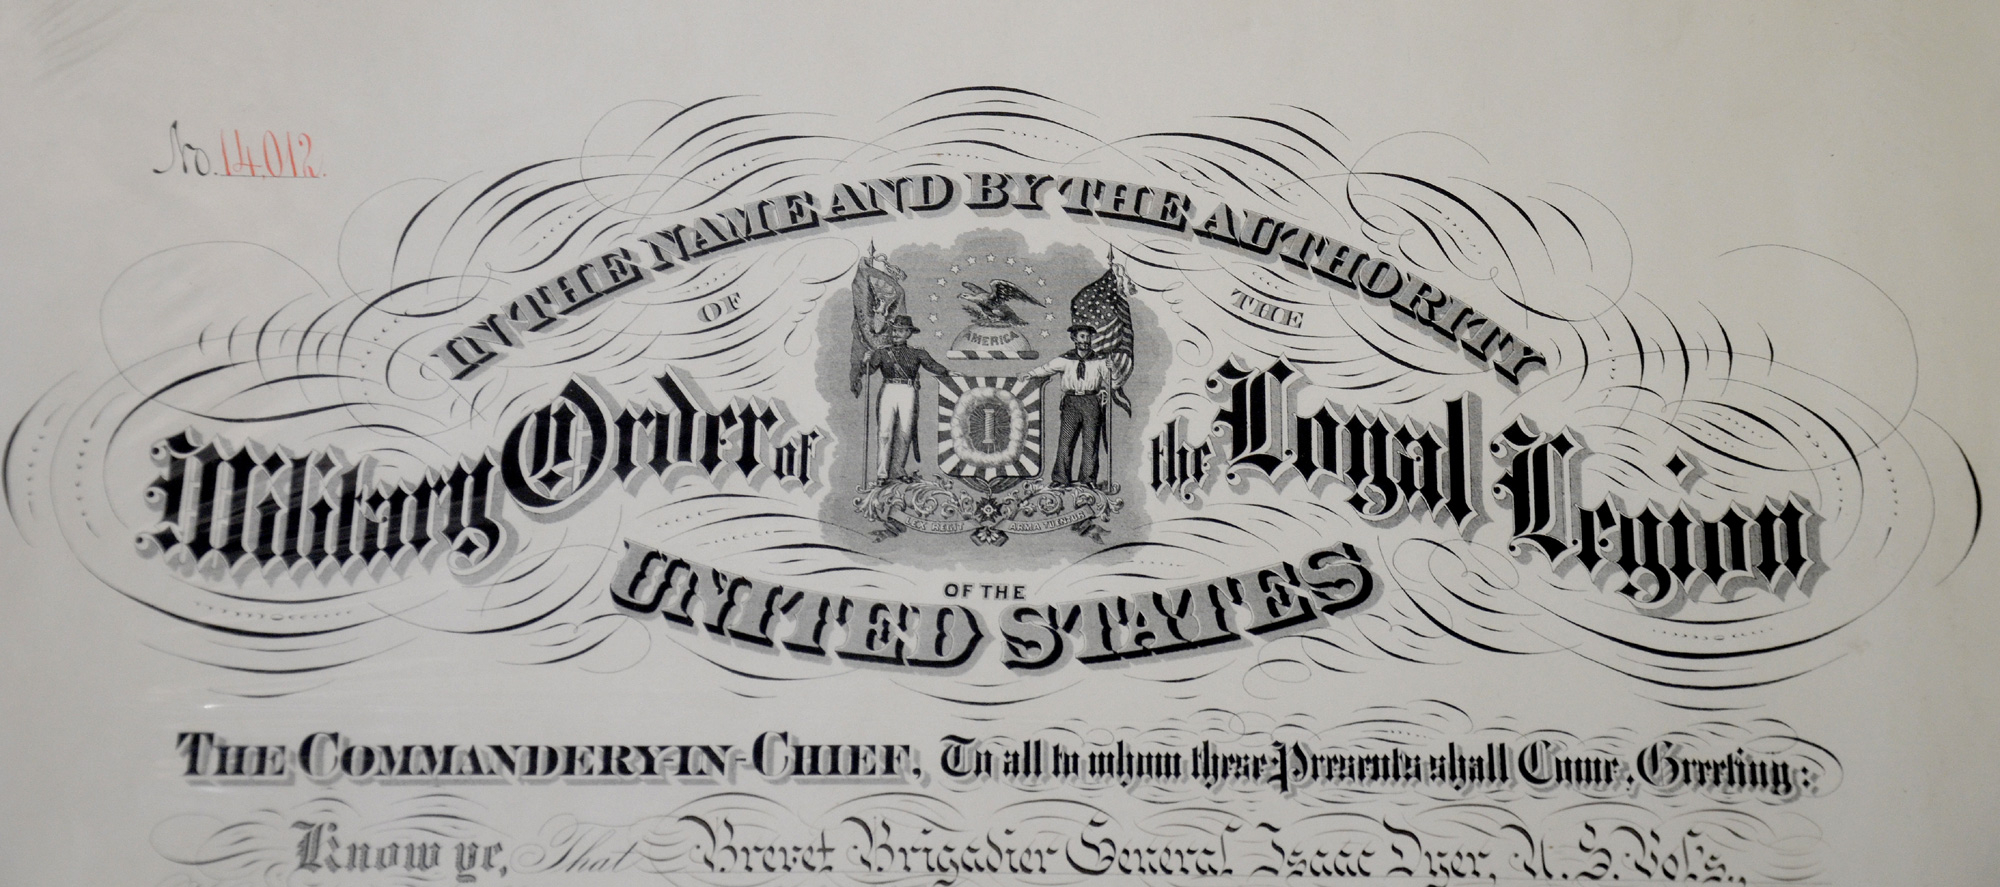 No. 14,012.
IN THE NAME AND BY THE AUTHORITY
OF THE
AMERICA
Military Order of the Loyal Legion
I
LEX REGIT ARMA TUENTUR
OF THE
UNITED STATES
THE COMMANDERY-IN-CHIEF, To all to whom these Presents shall Come, Greeting:
Know ye, That Brevet Brigadier General Isaac Dyer, U. S. Vols.,